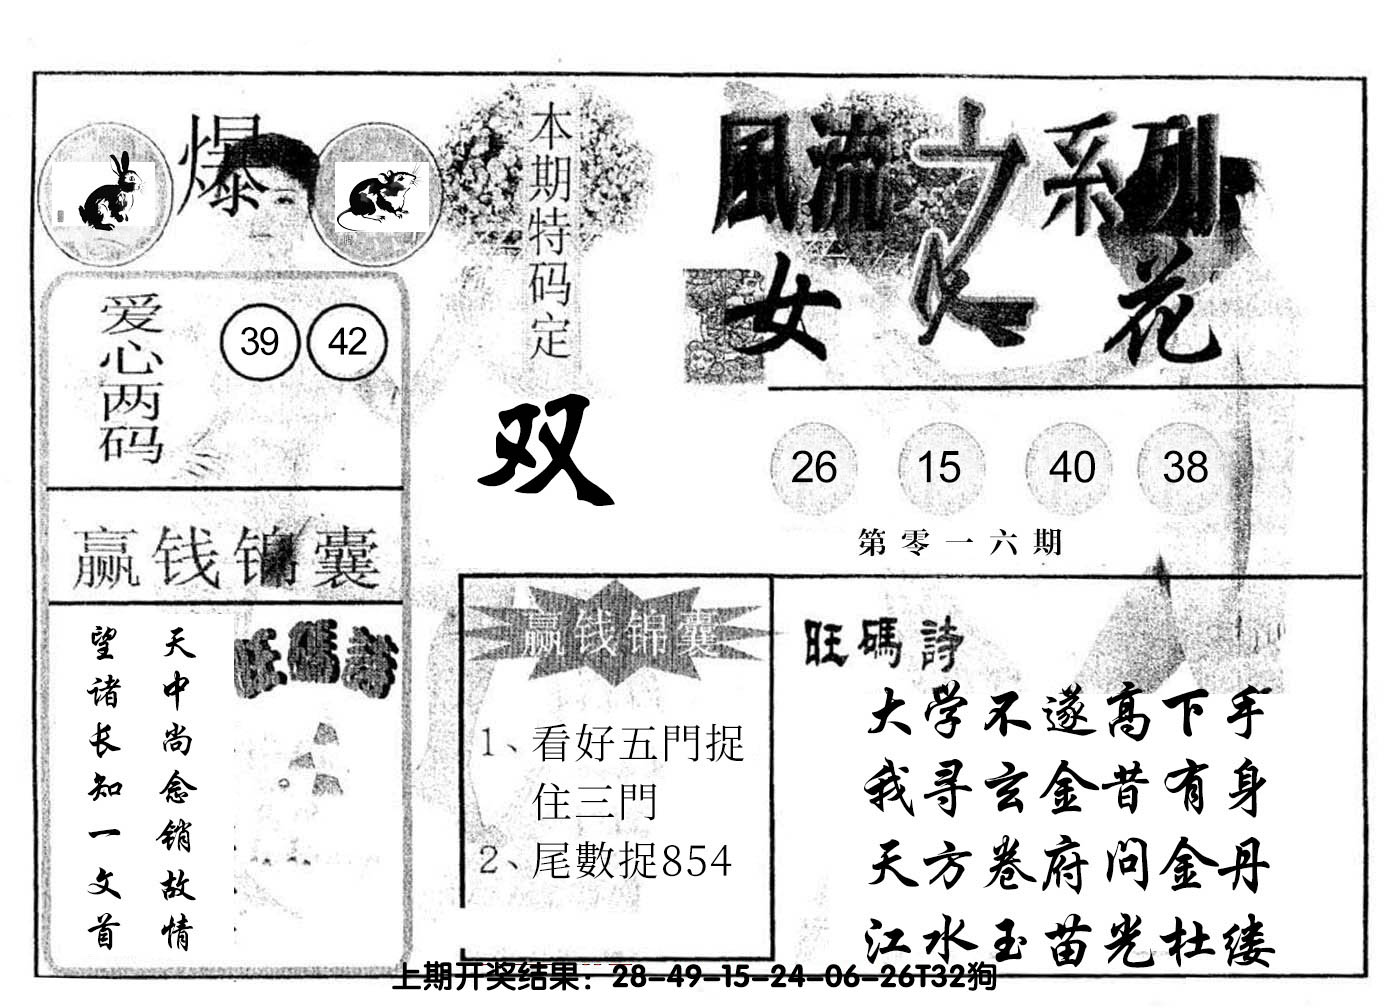 爆
本期特码定
双
風流之系列
女人花
爱心两码
39 42
26 15 40 38
第零一六期
赢钱锦囊
天中尚念销故情
望诸长知一文首
旺碼詩
赢钱锦囊
1、看好五門捉
住三門
2、尾數捉854
旺碼詩
大学不遂高下手
我寻玄金昔有身
天方卷府问金丹
江水玉苗光杜缕
上期开奖结果：28-49-15-24-06-26T32狗